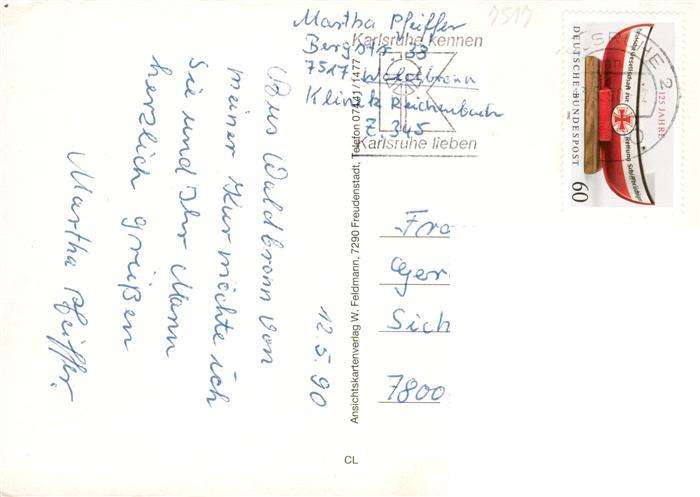 Martha Pfeiffer
Bergstr. 33
7517 Waldbronn
Klinik Reichenbach
Z. 345
7517
Karlsruhe kennen
Karlsruhe lieben
12.5.90
Aus Waldbronn von
meiner Kur möchte ich
Sie und Ihr Mann
herzlich grüßen
Martha Pfeiffer.
Ansichtskartenverlag W. Feldmann, 7290 Freudenstadt, Telefon 07441/1477
CL
Fra
Ger
Sich
7800
DEUTSCHE BUNDESPOST
60
125 JAHRE
Deutsche Gesellschaft zur Rettung Schiffbrüchiger